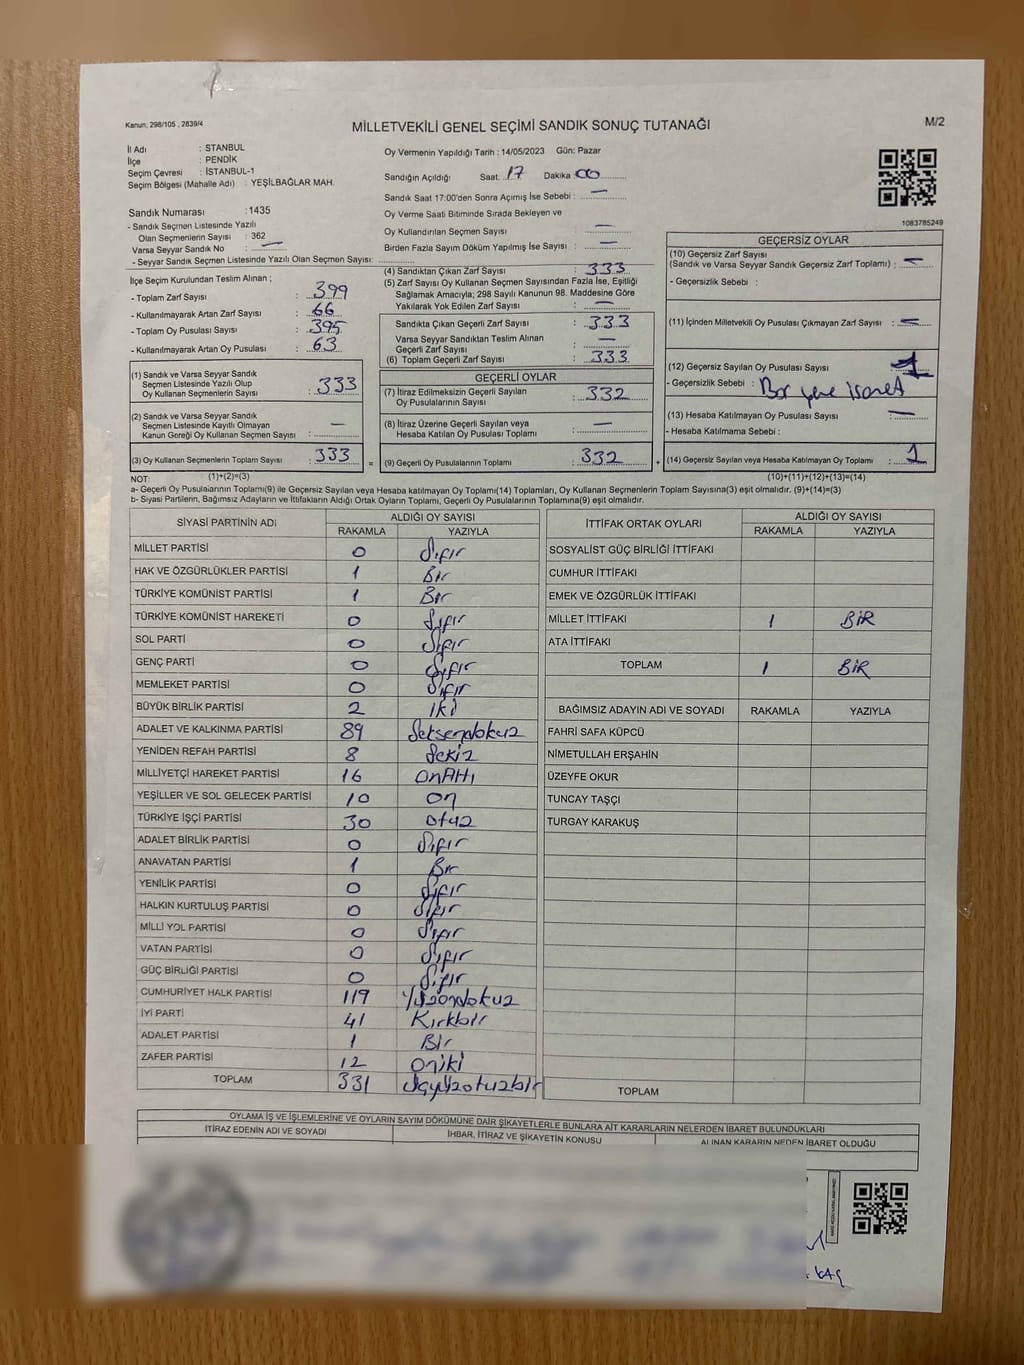 Kanun: 298/105 , 2839/4
MİLLETVEKİLİ GENEL SEÇİMİ SANDIK SONUÇ TUTANAĞI
M/2
İl Adı : STANBUL
İlçe : PENDİK
Seçim Çevresi : İSTANBUL-1
Seçim Bölgesi (Mahalle Adı) : YEŞİLBAĞLAR MAH.
Oy Vermenin Yapıldığı Tarih : 14/05/2023 Gün: Pazar
Sandığın Açıldığı Saat: 17 Dakika 00
Sandık Saat 17:00'den Sonra Açılmış İse Sebebi : —
Oy Verme Saati Bitiminde Sırada Bekleyen ve
Oy Kullandırılan Seçmen Sayısı : —
Birden Fazla Sayım Döküm Yapılmış İse Sayısı : —
1083785249
Sandık Numarası :1435
- Sandık Seçmen Listesinde Yazılı
Olan Seçmenlerin Sayısı : 362
Varsa Seyyar Sandık No : —
- Seyyar Sandık Seçmen Listesinde Yazılı Olan Seçmen Sayısı:
İlçe Seçim Kurulundan Teslim Alınan ;
- Toplam Zarf Sayısı : 399
- Kullanılmayarak Artan Zarf Sayısı : 66
- Toplam Oy Pusulası Sayısı : 395
- Kullanılmayarak Artan Oy Pusulası : 63
(1) Sandık ve Varsa Seyyar Sandık
Seçmen Listesinde Yazılı Olup
Oy Kullanan Seçmenlerin Sayısı : 333
(2) Sandık ve Varsa Seyyar Sandık
Seçmen Listesinde Kayıtlı Olmayan
Kanun Gereği Oy Kullanan Seçmen Sayısı : —
(3) Oy Kullanan Seçmenlerin Toplam Sayısı : 333
(4) Sandıktan Çıkan Zarf Sayısı : 333
(5) Zarf Sayısı Oy Kullanan Seçmen Sayısından Fazla İse, Eşitliği
Sağlamak Amacıyla; 298 Sayılı Kanunun 98. Maddesine Göre
Yakılarak Yok Edilen Zarf Sayısı : —
Sandıkta Çıkan Geçerli Zarf Sayısı : 333
Varsa Seyyar Sandıktan Teslim Alınan
Geçerli Zarf Sayısı : —
(6) Toplam Geçerli Zarf Sayısı : 333
GEÇERLİ OYLAR
(7) İtiraz Edilmeksizin Geçerli Sayılan
Oy Pusulalarının Sayısı : 332
(8) İtiraz Üzerine Geçerli Sayılan veya
Hesaba Katılan Oy Pusulası Toplamı : —
= (9) Geçerli Oy Pusulalarının Toplamı : 332
GEÇERSİZ OYLAR
(10) Geçersiz Zarf Sayısı
(Sandık ve Varsa Seyyar Sandık Geçersiz Zarf Toplamı) : —
- Geçersizlik Sebebi :
(11) İçinden Milletvekili Oy Pusulası Çıkmayan Zarf Sayısı : —
(12) Geçersiz Sayılan Oy Pusulası Sayısı : 1
- Geçersizlik Sebebi : Boş yere işaret
(13) Hesaba Katılmayan Oy Pusulası Sayısı : —
- Hesaba Katılmama Sebebi :
+ (14) Geçersiz Sayılan veya Hesaba Katılmayan Oy Toplamı : 1
NOT: (1)+(2)=(3) (10)+(11)+(12)+(13)=(14)
a- Geçerli Oy Pusulalarının Toplamı(9) ile Geçersiz Sayılan veya Hesaba katılmayan Oy Toplamı(14) Toplamları, Oy Kullanan Seçmenlerin Toplam Sayısına(3) eşit olmalıdır. (9)+(14)=(3)
b- Siyasi Partilerin, Bağımsız Adayların ve İttifakların Aldığı Ortak Oyların Toplamı, Geçerli Oy Pusulalarının Toplamına(9) eşit olmalıdır.
SİYASİ PARTİNİN ADI ALDIĞI OY SAYISI
RAKAMLA YAZIYLA
MİLLET PARTİSİ 0 Sıfır
HAK VE ÖZGÜRLÜKLER PARTİSİ 1 Bir
TÜRKİYE KOMÜNİST PARTİSİ 1 Bir
TÜRKİYE KOMÜNİST HAREKETİ 0 Sıfır
SOL PARTİ 0 Sıfır
GENÇ PARTİ 0 Sıfır
MEMLEKET PARTİSİ 0 Sıfır
BÜYÜK BİRLİK PARTİSİ 2 İki
ADALET VE KALKINMA PARTİSİ 89 Seksendokuz
YENİDEN REFAH PARTİSİ 8 Sekiz
MİLLİYETÇİ HAREKET PARTİSİ 16 OnAltı
YEŞİLLER VE SOL GELECEK PARTİSİ 10 On
TÜRKİYE İŞÇİ PARTİSİ 30 Otuz
ADALET BİRLİK PARTİSİ 0 Sıfır
ANAVATAN PARTİSİ 1 Bir
YENİLİK PARTİSİ 0 Sıfır
HALKIN KURTULUŞ PARTİSİ 0 Sıfır
MİLLİ YOL PARTİSİ 0 Sıfır
VATAN PARTİSİ 0 Sıfır
GÜÇ BİRLİĞİ PARTİSİ 0 Sıfır
CUMHURİYET HALK PARTİSİ 119 Yüzondokuz
İYİ PARTİ 41 Kırkbir
ADALET PARTİSİ 1 Bir
ZAFER PARTİSİ 12 Oniki
TOPLAM 331
İTTİFAK ORTAK OYLARI ALDIĞI OY SAYISI
RAKAMLA YAZIYLA
SOSYALİST GÜÇ BİRLİĞİ İTTİFAKI
CUMHUR İTTİFAKI
EMEK VE ÖZGÜRLÜK İTTİFAKI
MİLLET İTTİFAKI 1 BİR
ATA İTTİFAKI
TOPLAM 1 BİR
BAĞIMSIZ ADAYIN ADI VE SOYADI RAKAMLA YAZIYLA
FAHRİ SAFA KÜPCÜ
NİMETULLAH ERŞAHİN
ÜZEYFE OKUR
TUNCAY TAŞÇI
TURGAY KARAKUŞ
TOPLAM
OYLAMA İŞ VE İŞLEMLERİNE VE OYLARIN SAYIM DÖKÜMÜNE DAİR ŞİKAYETLERLE BUNLARA AİT KARARLARIN NELERDEN İBARET BULUNDUKLARI
İTİRAZ EDENİN ADI VE SOYADI İHBAR, İTİRAZ VE ŞİKAYETİN KONUSU ALINAN KARARIN NEDEN İBARET OLDUĞU